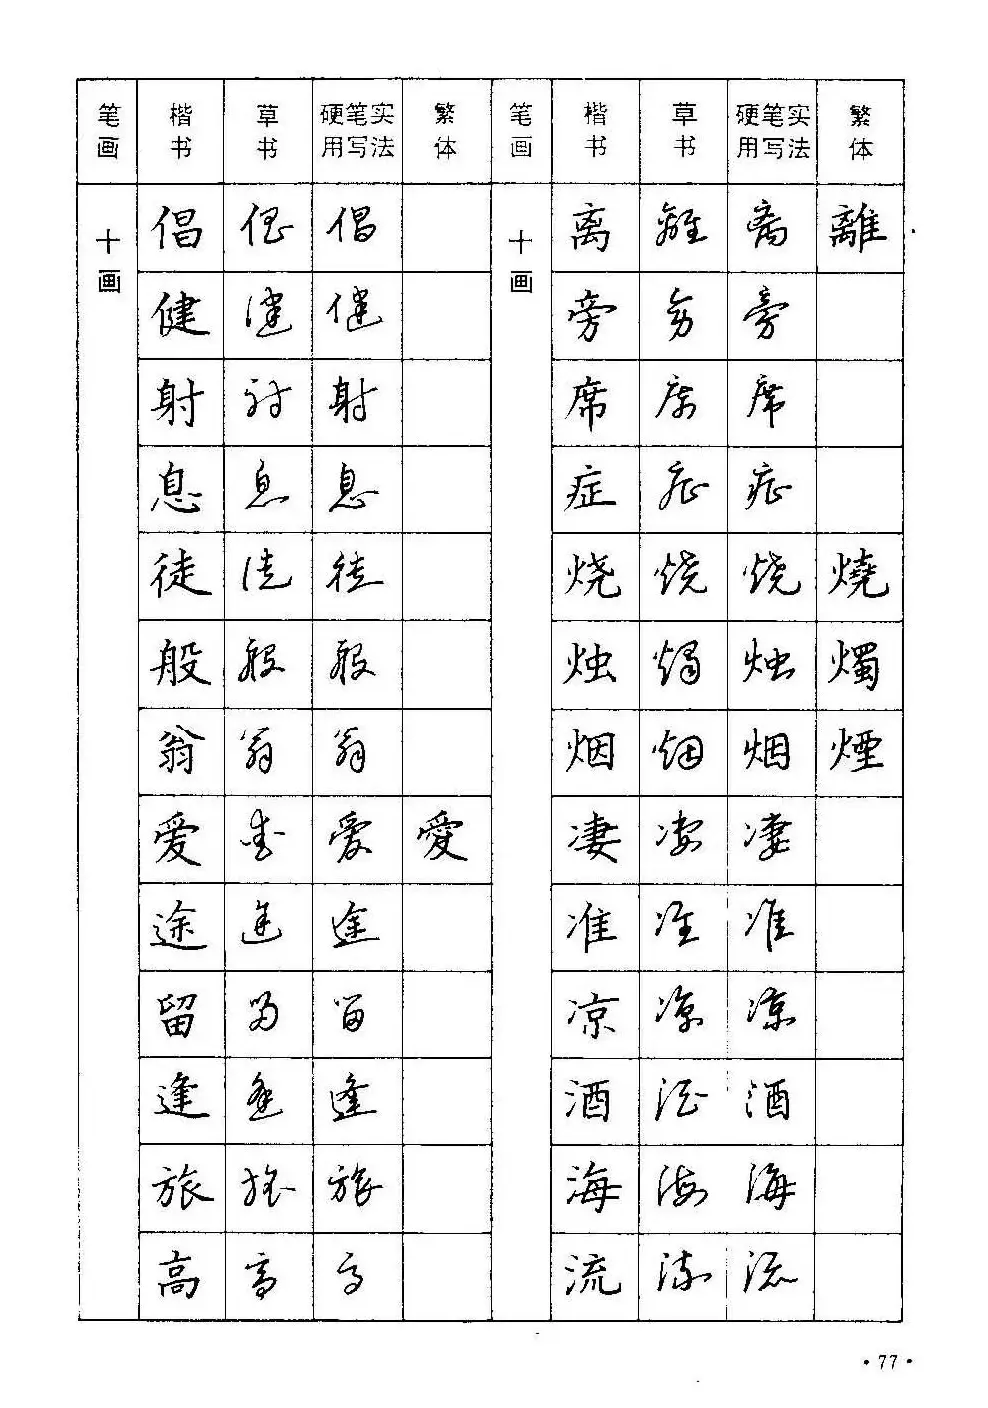 笔画 楷书 草书 硬笔实用写法 繁体 笔画 楷书 草书 硬笔实用写法 繁体
十画 倡 倡 倡 十画 离 離 离 離
健 健 健 旁 旁 旁
射 射 射 席 席 席
息 息 息 症 症 症
徒 徒 徒 烧 烧 烧 燒
般 般 般 烛 燭 烛 燭
翁 翁 翁 烟 烟 烟 煙
爱 爱 爱 愛 凄 凄 凄
途 途 途 准 准 准
留 留 留 凉 凉 凉
逢 逢 逢 酒 酒 酒
旅 旅 旅 海 海 海
高 高 高 流 流 流
·77·